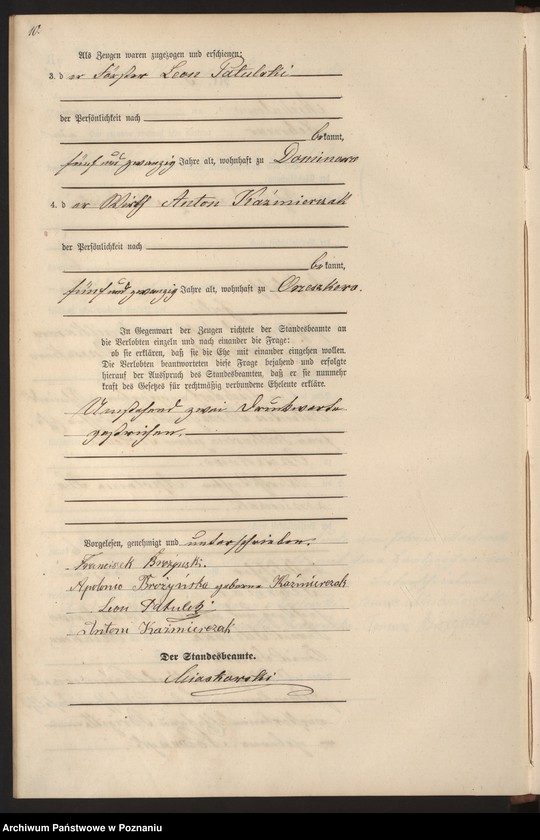 10.
Als Zeugen waren zugezogen und erschienen:
3. d er Förster Leon Patulski
der Persönlichkeit nach
bekannt,
fünf und zwanzig Jahre alt, wohnhaft zu Dominowo
4. d er Wirth Anton Kaźmierczak
der Persönlichkeit nach
bekannt,
fünf und zwanzig Jahre alt, wohnhaft zu Orzeszkowo.
In Gegenwart der Zeugen richtete der Standesbeamte an
die Verlobten einzeln und nach einander die Frage:
ob sie erklären, daß sie die Ehe mit einander eingehen wollen.
Die Verlobten beantworteten diese Frage bejahend und erfolgte
hierauf der Ausspruch des Standesbeamten, daß er sie nunmehr
kraft des Gesetzes für rechtmäßig verbundene Eheleute erkläre.
Umstehend zwei Druckworte
gestrichen.
Vorgelesen, genehmigt und unterschrieben.
Apolonia Brożyńska geborne Kaźmierczak
Leon
Antoni Kaźmierczak
Der Standesbeamte.
Miaskowski
Archiwum Państwowe w Poznaniu